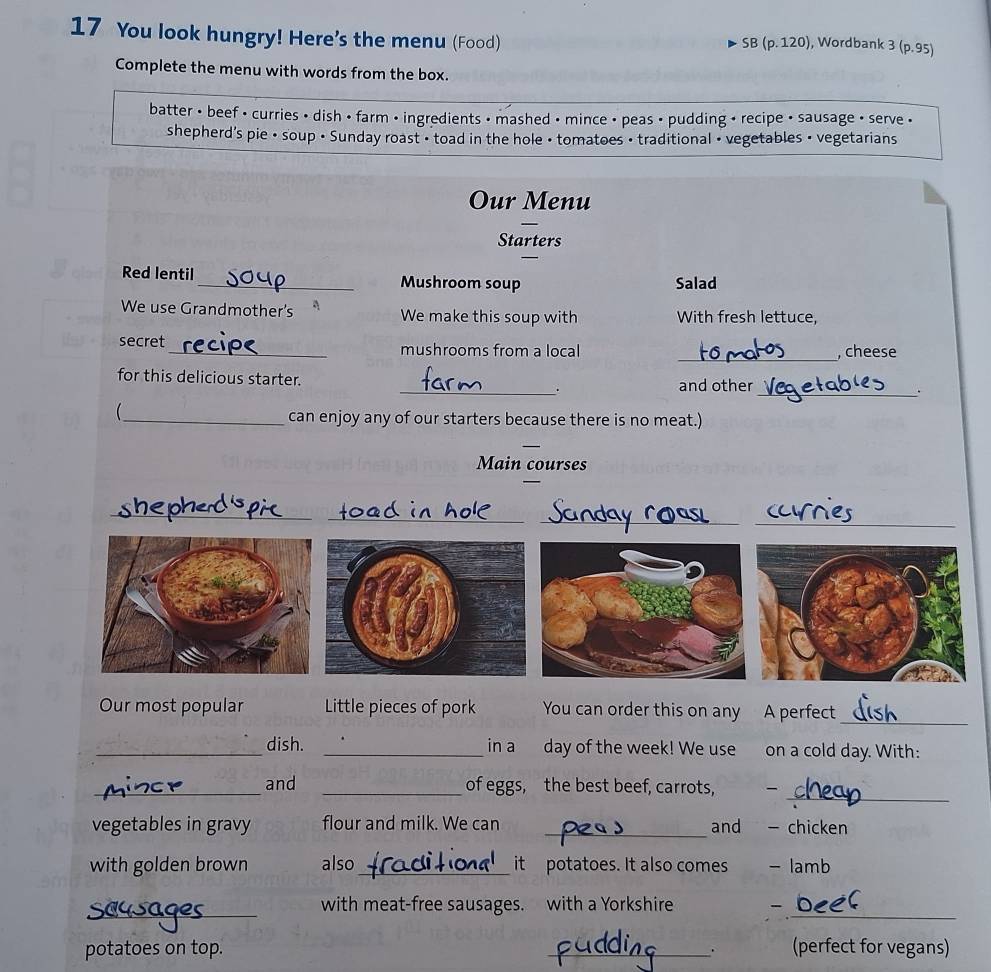 17 You look hungry! Here's the menu (Food)
▶ SB (p.120), Wordbank 3 (p.95)
Complete the menu with words from the box.
batter • beef • curries • dish • farm • ingredients • mashed • mince • peas • pudding • recipe • sausage • serve •
shepherd's pie • soup • Sunday roast • toad in the hole • tomatoes • traditional • vegetables • vegetarians
Our Menu
Starters
Red lentil soup
We use Grandmother's
secret recipe
for this delicious starter.
Mushroom soup
We make this soup with
mushrooms from a local
farm.
Salad
With fresh lettuce,
tomatos, cheese
and other Vegetables.
( can enjoy any of our starters because there is no meat.)
Main courses
shepherd's pie
toad in hole
Sanday roast
curries
Our most popular
dish.
mince and
vegetables in gravy
with golden brown
sausages
potatoes on top.
Little pieces of pork
in a
of eggs,
flour and milk. We can
also traditional it
with meat-free sausages.
You can order this on any
day of the week! We use
the best beef, carrots,
peas and
potatoes. It also comes
with a Yorkshire
pudding.
A perfect dish
on a cold day. With:
– cheap
– chicken
– lamb
– beef
(perfect for vegans)